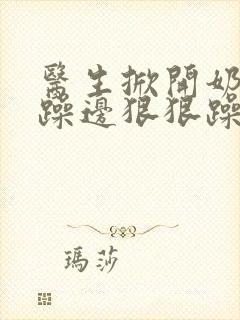 醫生掀開奶
躁邊狠狠躁
瑪莎